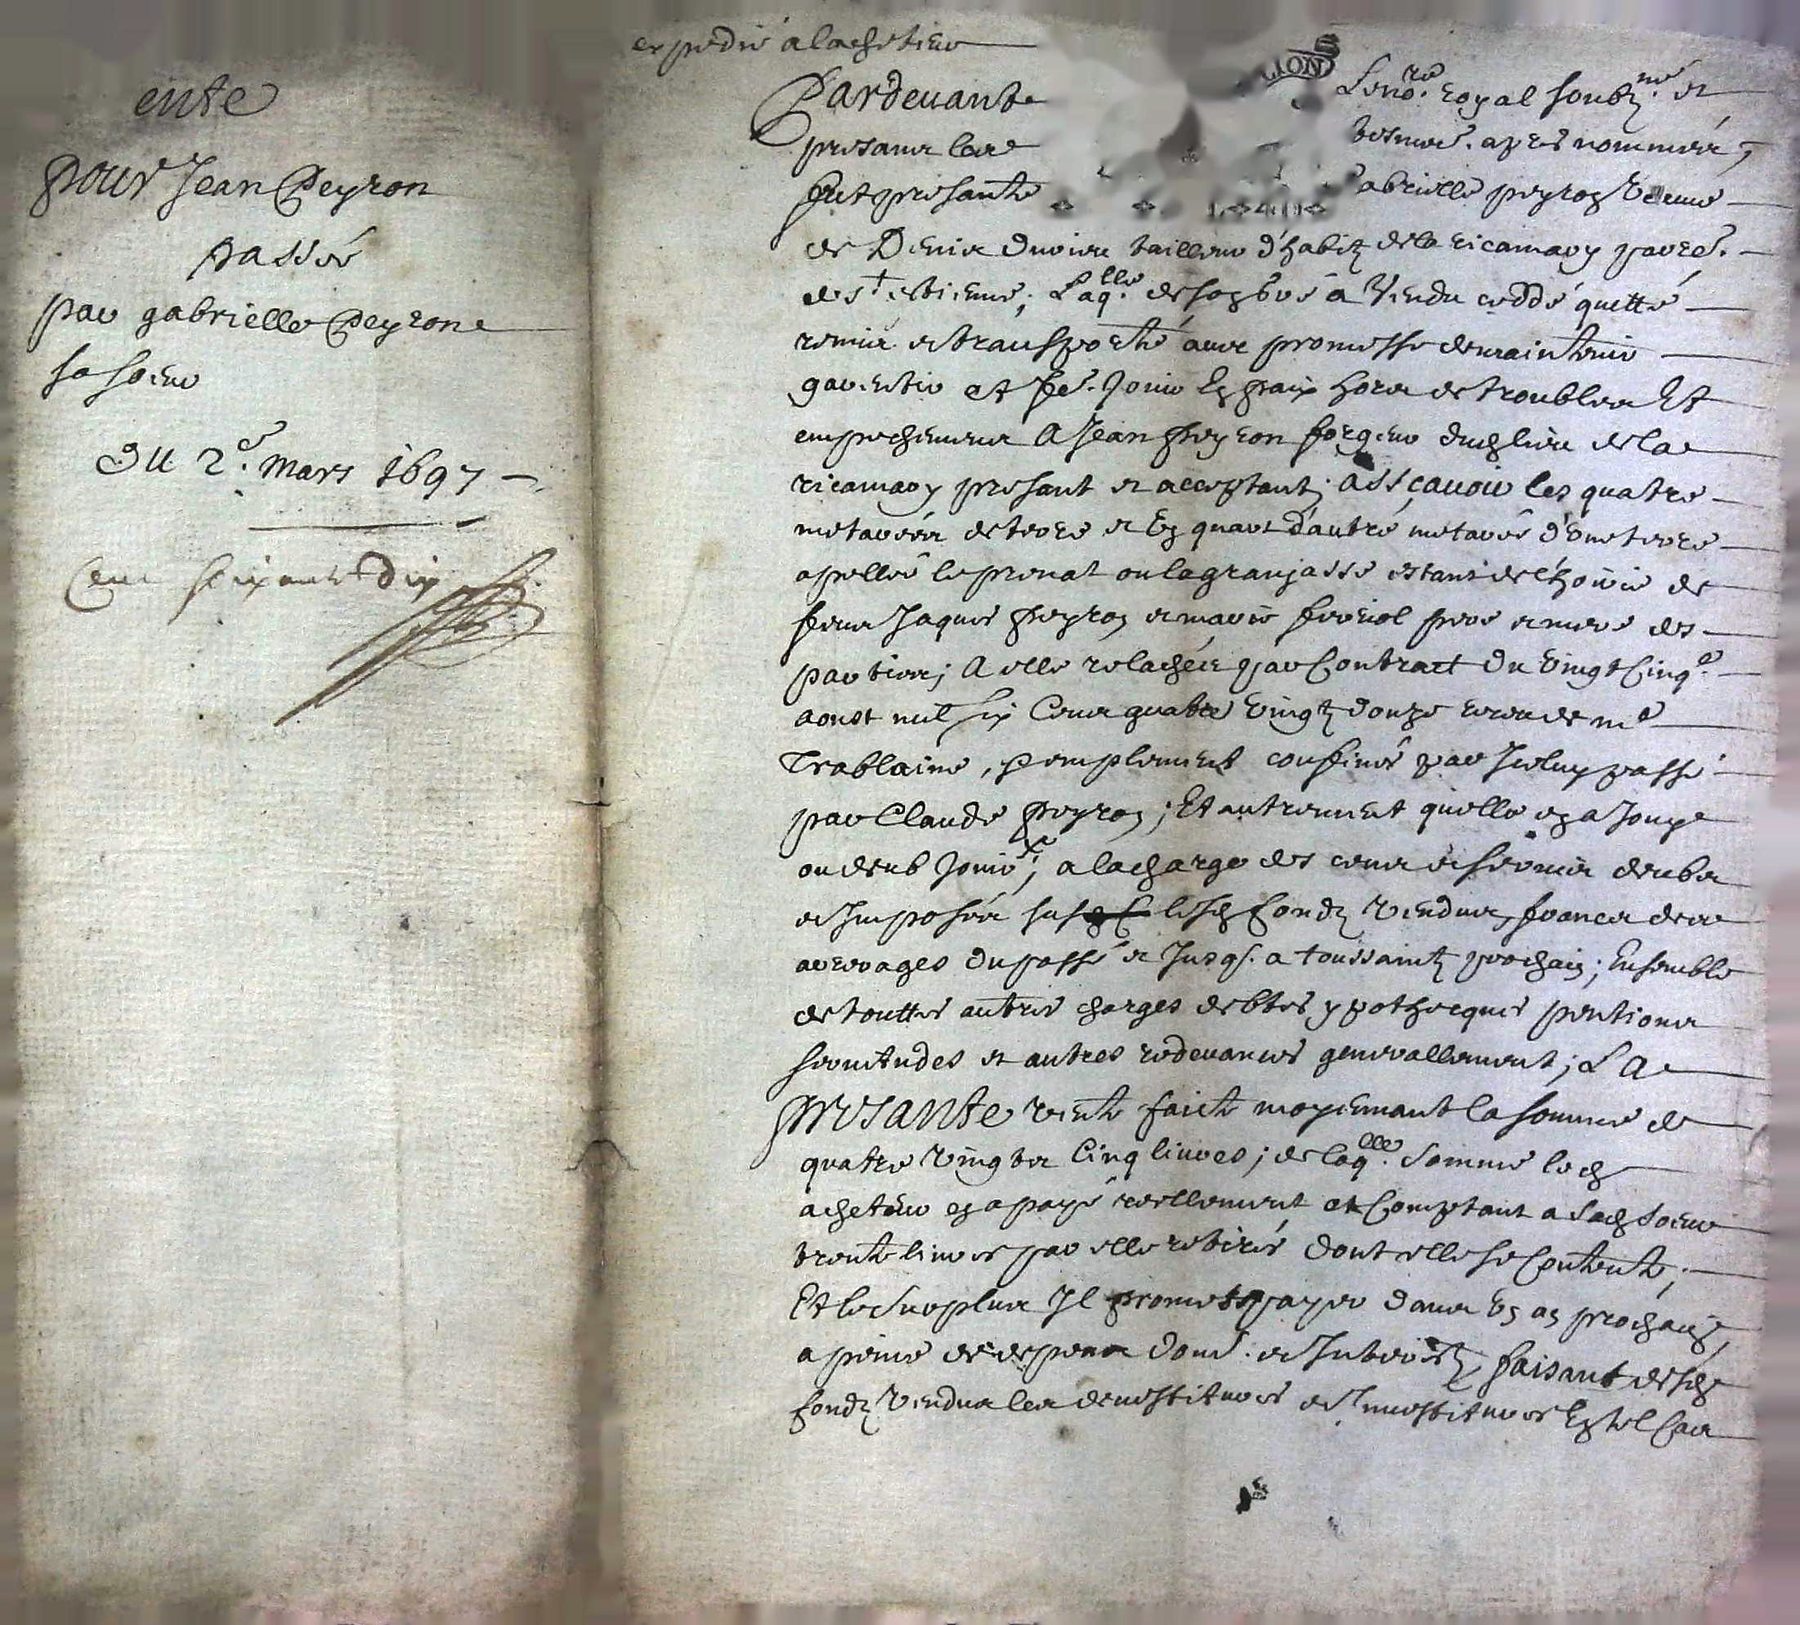 ente
pour Jean Peyron
passée
par gabrielle Peyrone
sa soeur
Du 2e. mars 1697
Cent soixante dix
expedié a lacheteur
Pardevant Le no.re royal soubz.né et
presance des tesmoins apres nommés,
fut presante Gabrielle peyron veuve
de Denis tailleur d'habitz de la ricamary parre.
de st estienne; Laq.lle de son gré a Vendu ceddé quitté
remis et transporté avec promesse de maintenir
garentir et fe. Jouir En paix hors de troubles Et
empechemens A Jean peyron forgeur dud lieu de la
ricamary presant et acceptant; assçavoir les quatre
metaneés de terre et Un quart d'autre metancé d'une terre
apellee le prenat ou la granjasse estant de l'hoirie de
feus Jaques peyron et marie ferriol pere et mere des
parties; A elle relachés par Contract du Vingt Cinq.e
aoust mil six Cens quatre Vingtz douze receu de me
Trablaine, amplement confinés par Iceluy passé
par Claude peyron; Et autrement quelle en a Jouy
ou deub Jouir; a la charge des cens et servis deubs
et Imposés sus lesd fondz Vendus, francs des
arrerages du passé et Jusq. a toussaintz prochain; Ensemble
de touttes autres charges debtes ypothecques pentions
servitudes et autres redevances generallement; La
presante vente faicte moyennant la somme de
quatre Vingts Cinq livres; de laq.lle somme led
acheteur en a payé reellement et Comptant a lad soeur
trente livres par elle retirés dont elle se Contente;
Et le surplus Il promet payer dans Un an prochain,
a peine de depens dom. et Interestz, faisant desd
fondz Vendus les devestitures et Investitures En tel Cas